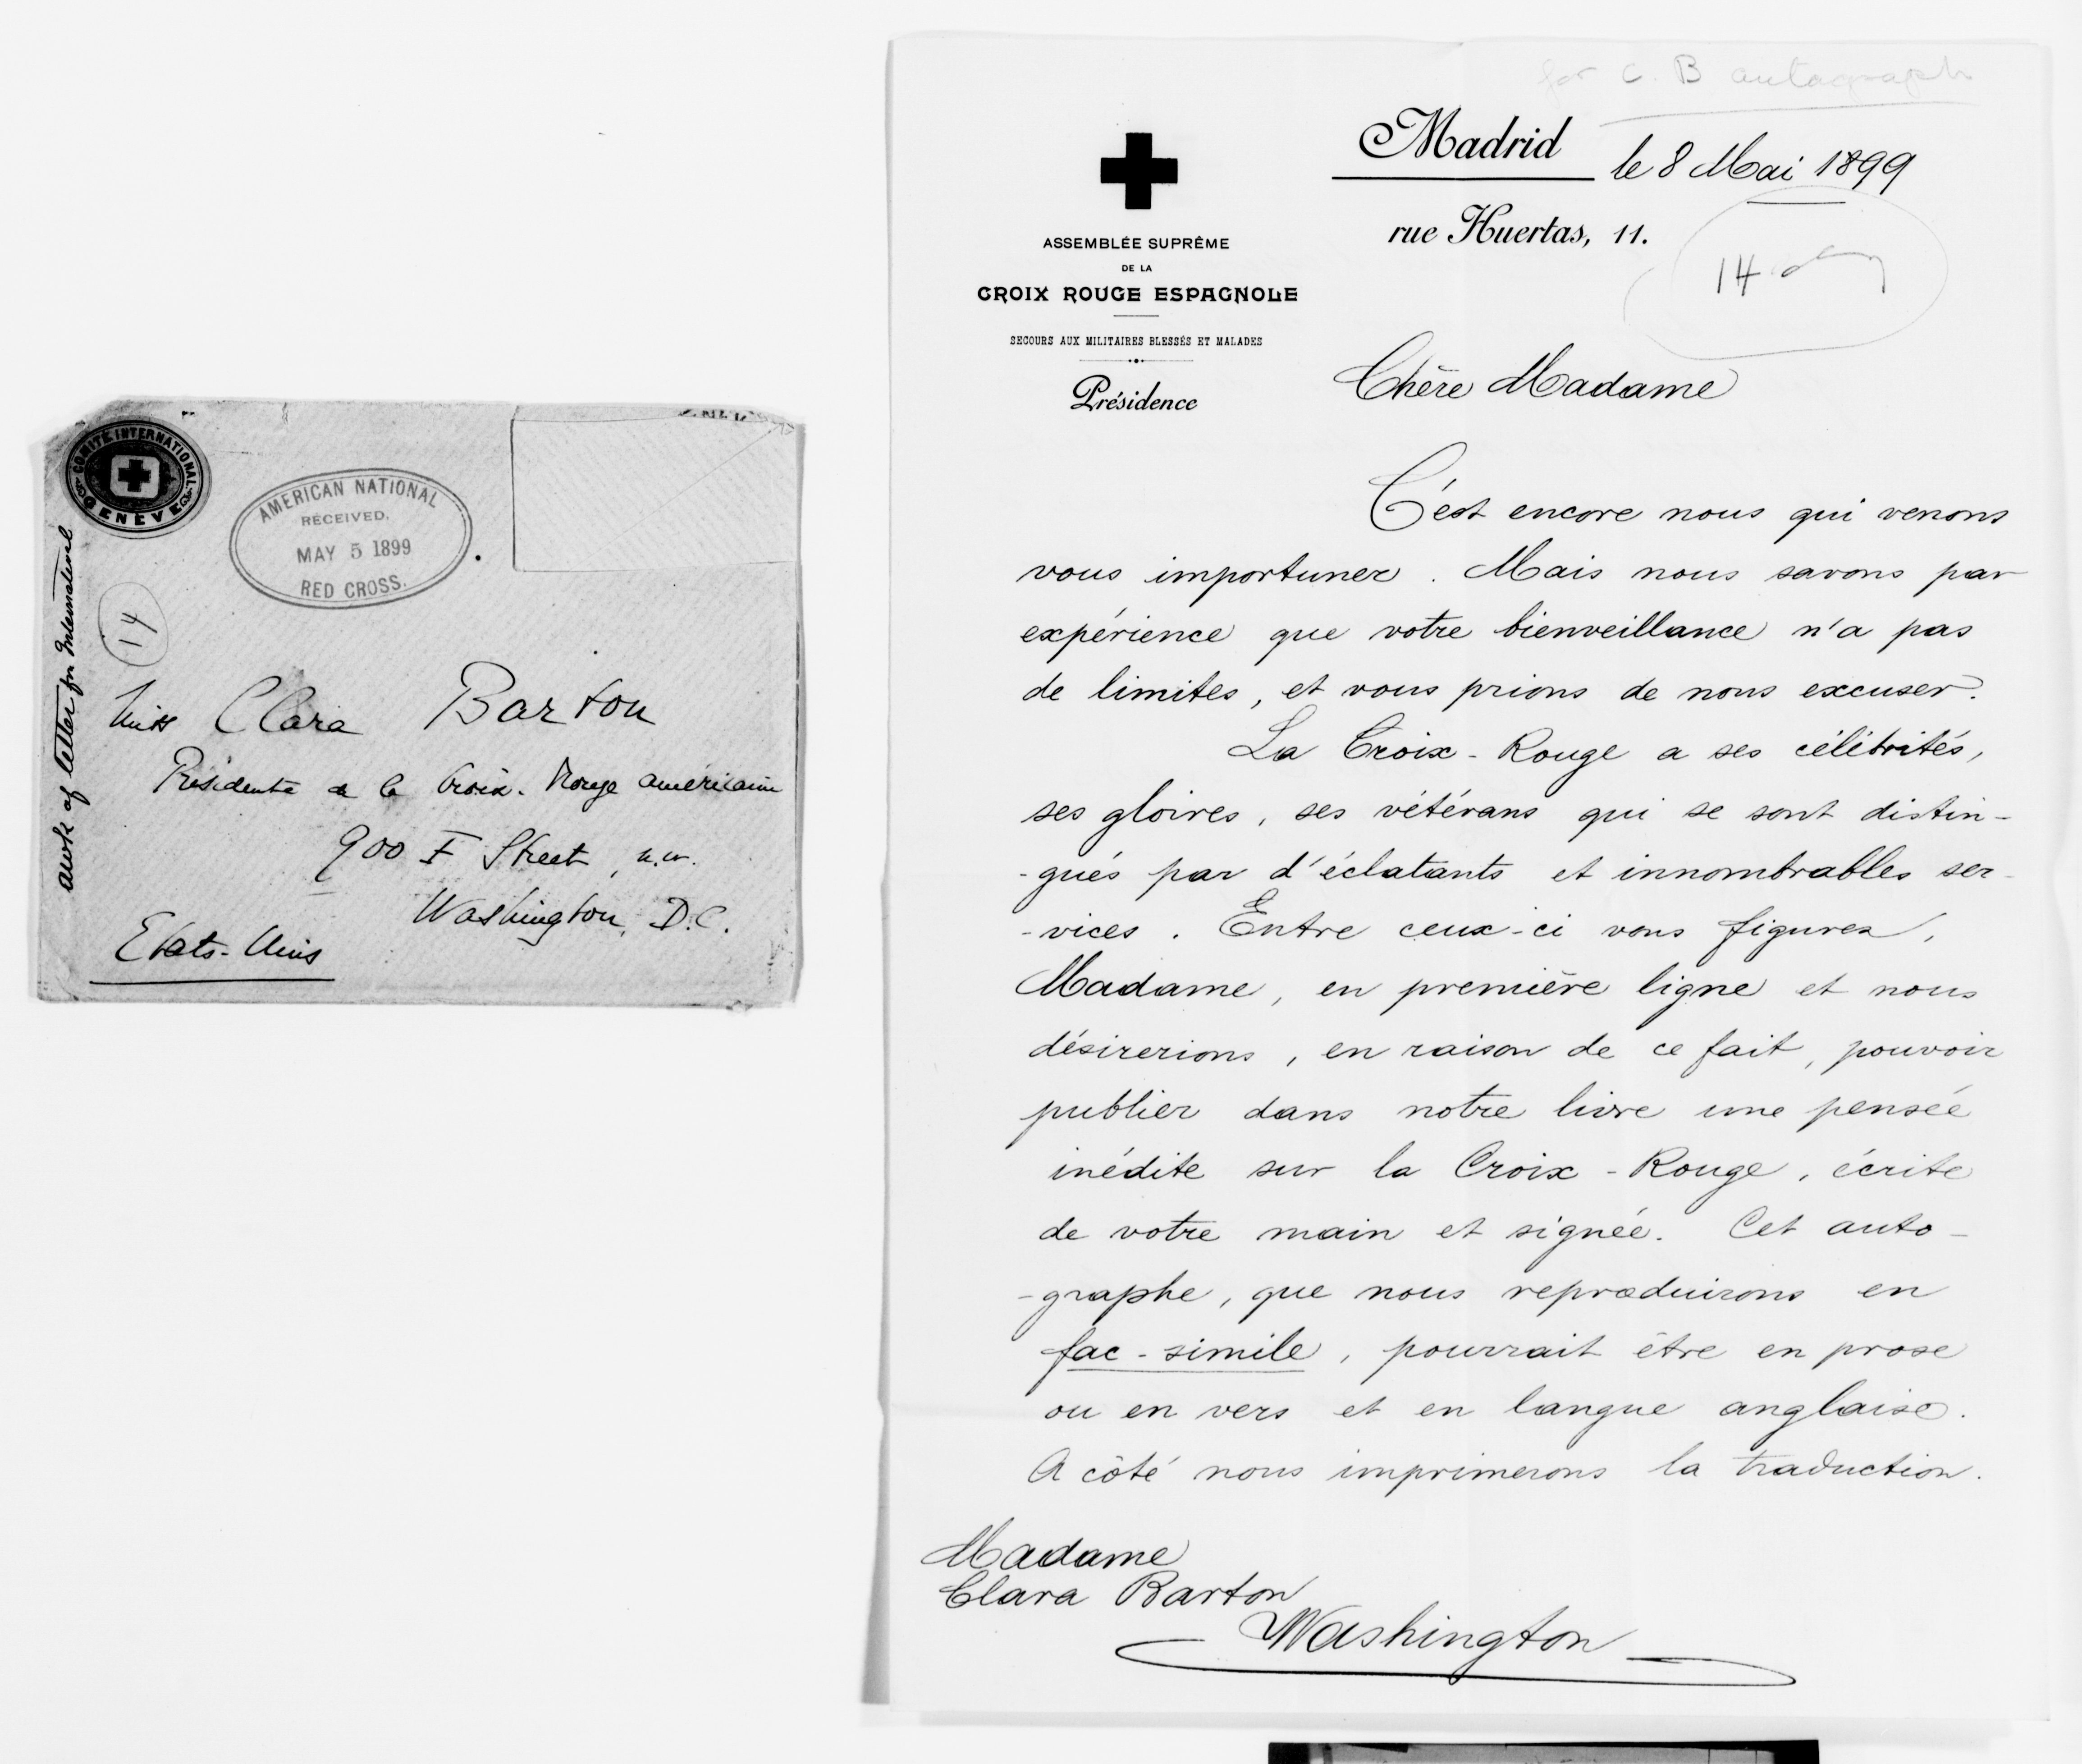 COMITÉ INTERNATIONAL
GENÈVE
AMERICAN NATIONAL
RECEIVED,
MAY 5 1899
RED CROSS.
14
of letter for International
Miss Clara Barton
Présidente de la Croix-Rouge américaine
900 F Street, n.w.
Washington, D.C.
Etats-Unis
for C. B autograph
Madrid le 8 Mai 1899
rue Huertas, 11.
14
ASSEMBLÉE SUPRÊME
DE LA
CROIX ROUGE ESPAGNOLE
SECOURS AUX MILITAIRES BLESSÉS ET MALADES
Présidence
Chère Madame
C'est encore nous qui venons
vous importuner. Mais nous savons par
expérience que votre bienveillance n'a pas
de limites, et vous prions de nous excuser.
La Croix-Rouge a ses célébrités,
ses gloires, ses vétérans qui se sont distin-
-gués par d'éclatants et innombrables ser-
-vices. Entre ceux-ci vous figurez,
Madame, en première ligne et nous
désirerions, en raison de ce fait, pouvoir
publier dans notre livre une pensée
inédite sur la Croix-Rouge, écrite
de votre main et signée. Cet auto-
-graphe, que nous reproduirons en
fac-simile, pourrait être en prose
ou en vers et en langue anglaise.
A côté nous imprimerons la traduction.
Madame
Clara Barton
Washington